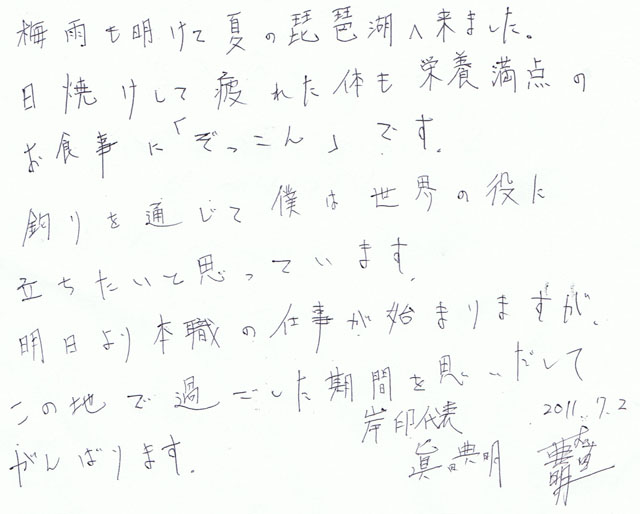 梅雨も明けて夏の琵琶湖へ来ました。
日焼けして疲れた体も栄養満点の
お食事に「ぞっこん」です。
釣りを通じて僕は世界の役に
立ちたいと思っています。
明日より本職の仕事が始まりますが、
この地で過ごした期間を思いだして
がんばります。
岸印代表
2011.7.2
典明